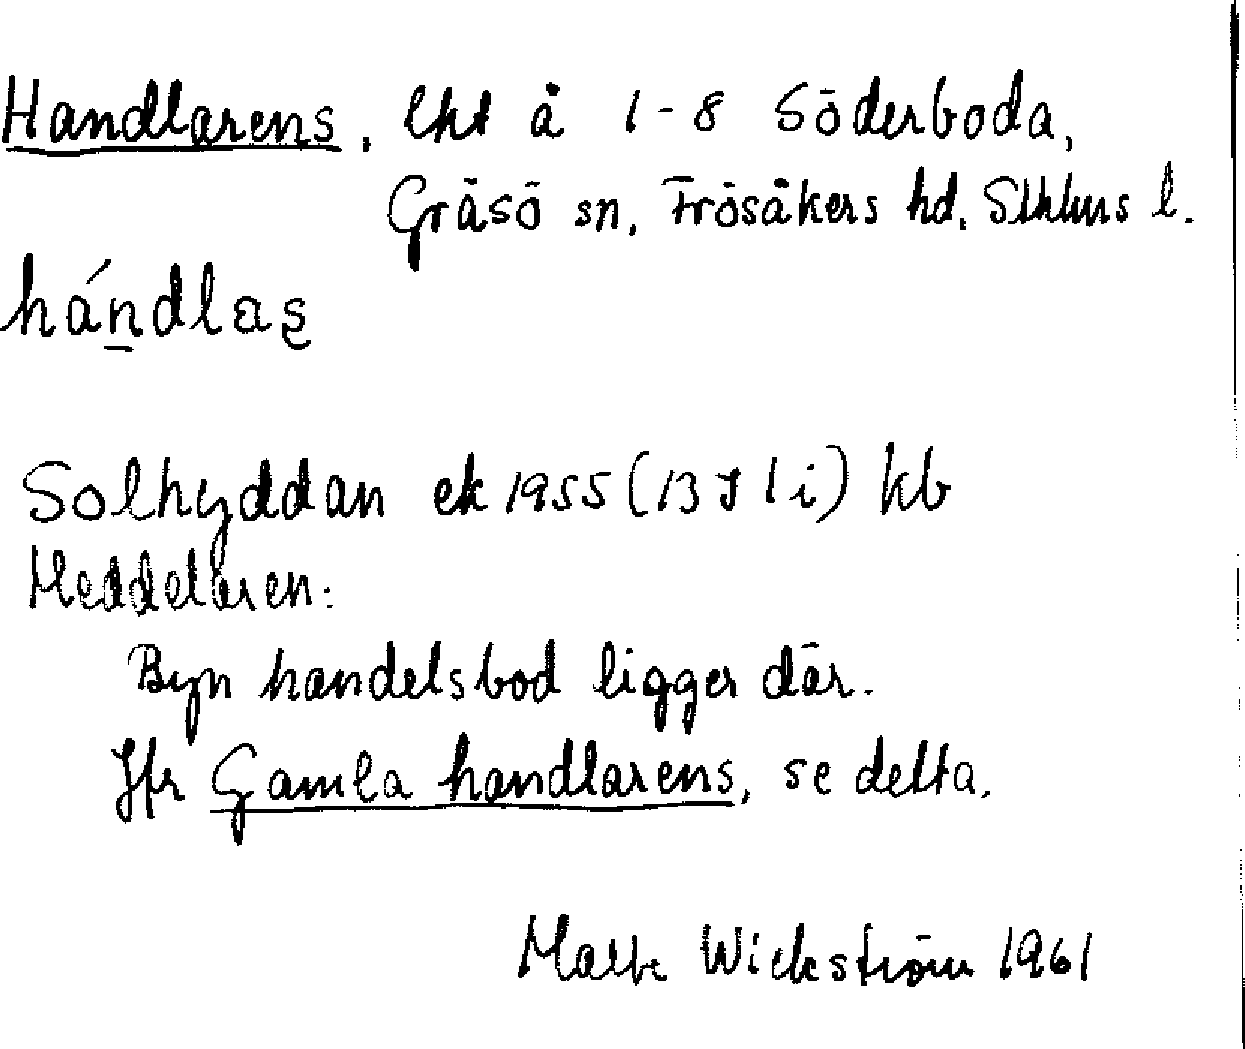 Handlarens, lht å 1-8 Söderboda,
Gräsö sn, Frösåkers hd, Sthlms l.
hándlas̬
Solhyddan ek 1955 (13 I 1 i) kb
Meddelaren:
Byn handelsbod ligger där.
Jfr Gamla handlarens, se detta.
Wickström 1961